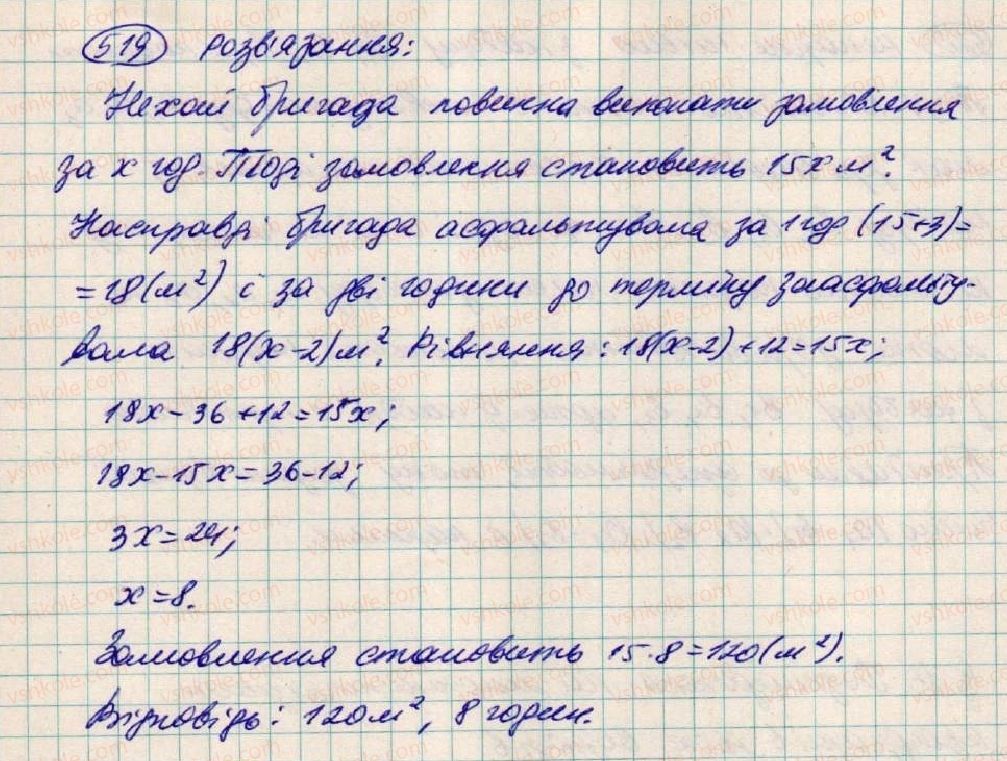 519 Розв'язання:
Нехай бригада повинна виконати замовлення
за x год. Тоді замовлення становить 15x м².
Насправді бригада асфальтувала за 1 год (15+3)=
=18(м²) і за дві години до терміну заасфальту-
вала 18(x-2)м². Рівняння: 18(x-2)+12=15x;
18x-36+12=15x;
18x-15x=36-12;
3x=24;
x=8.
Замовлення становить 15·8=120(м²).
Відповідь: 120м², 8 годин.